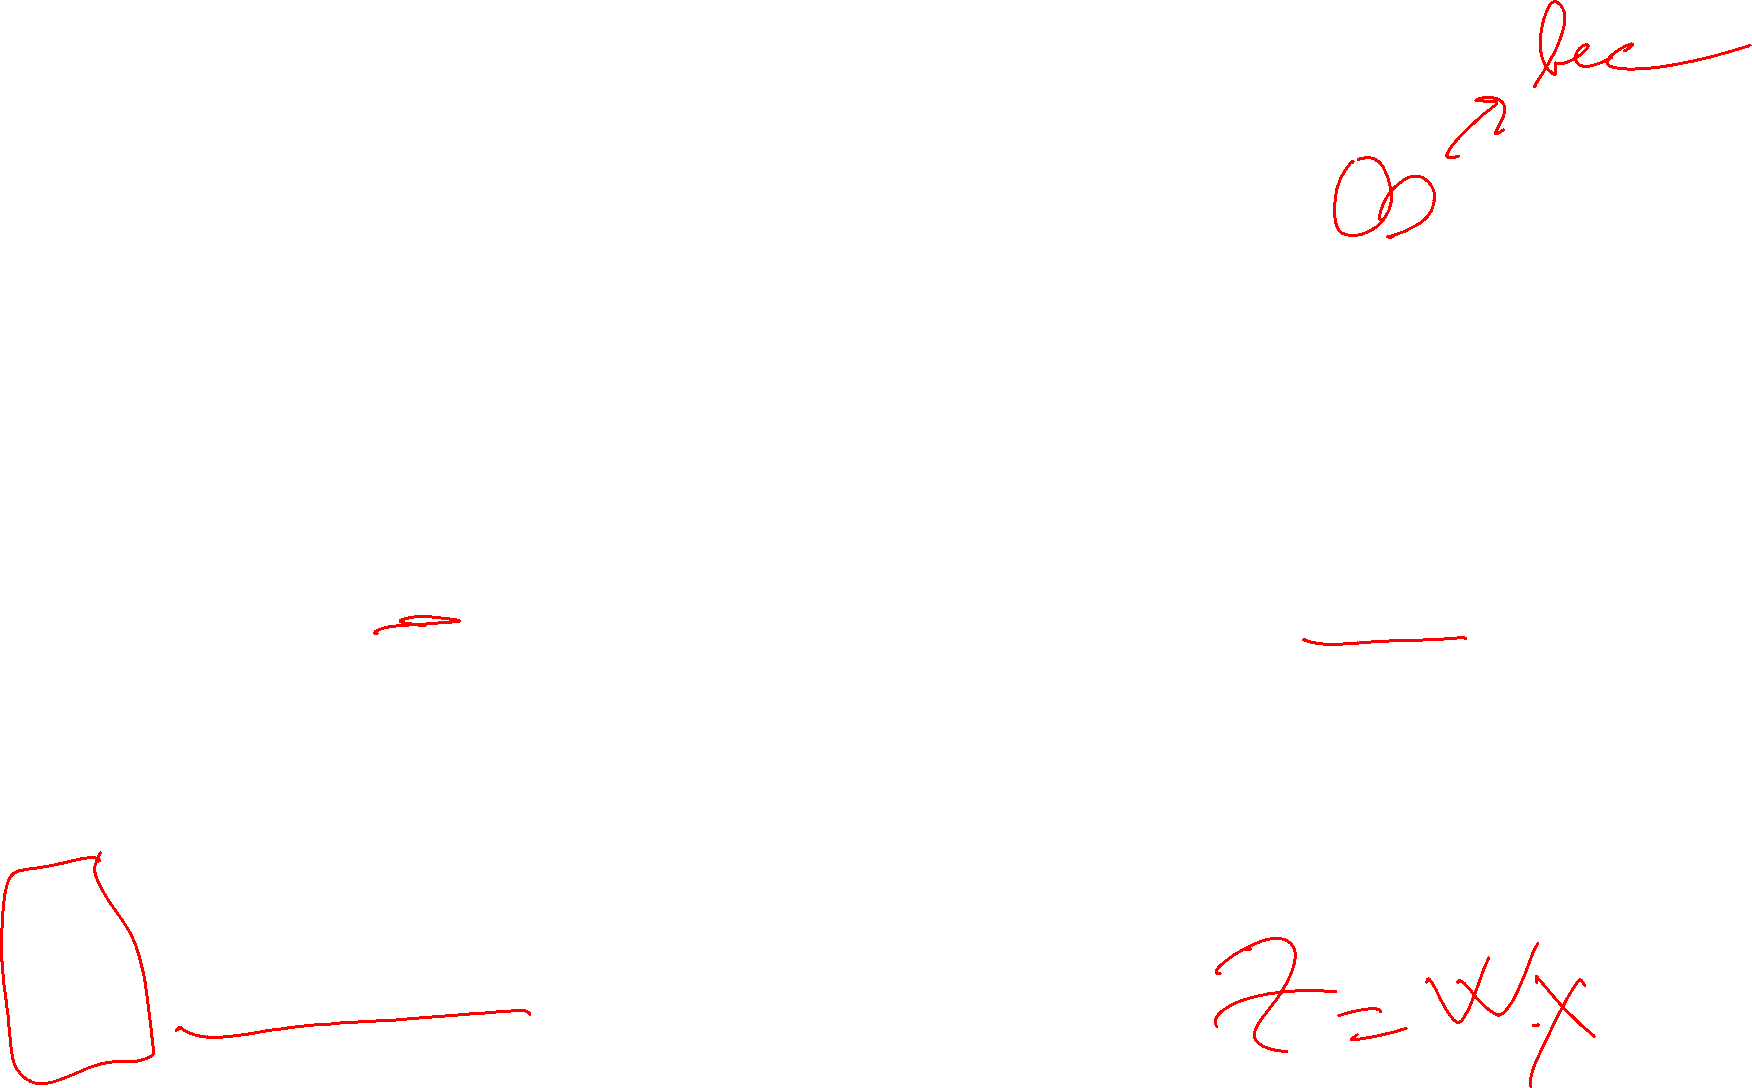 bec
z = w.x